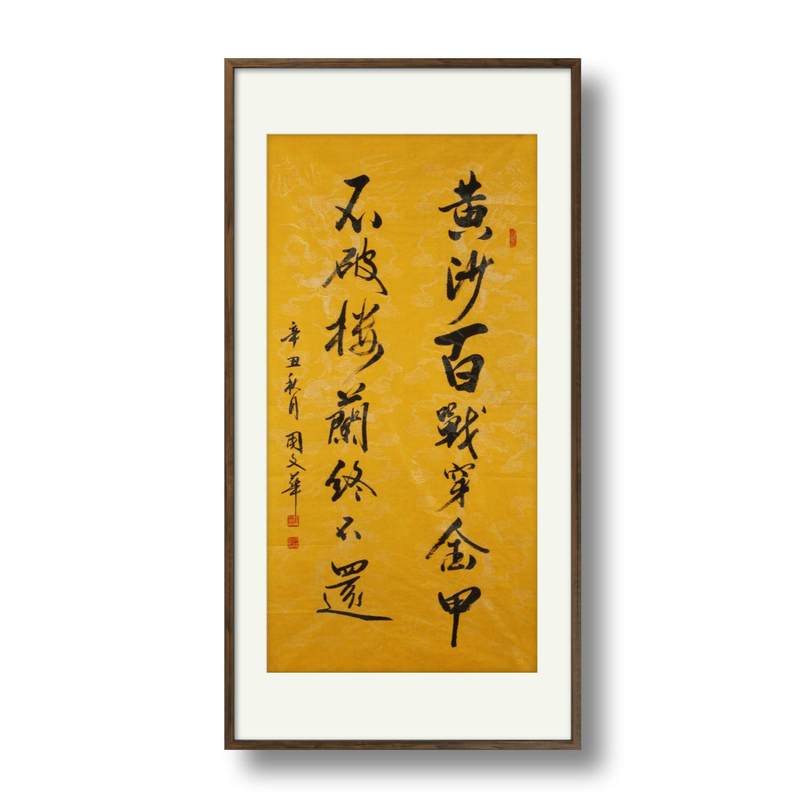 黄沙百戰穿金甲
不破楼蘭终不還
辛丑秋月 周文華